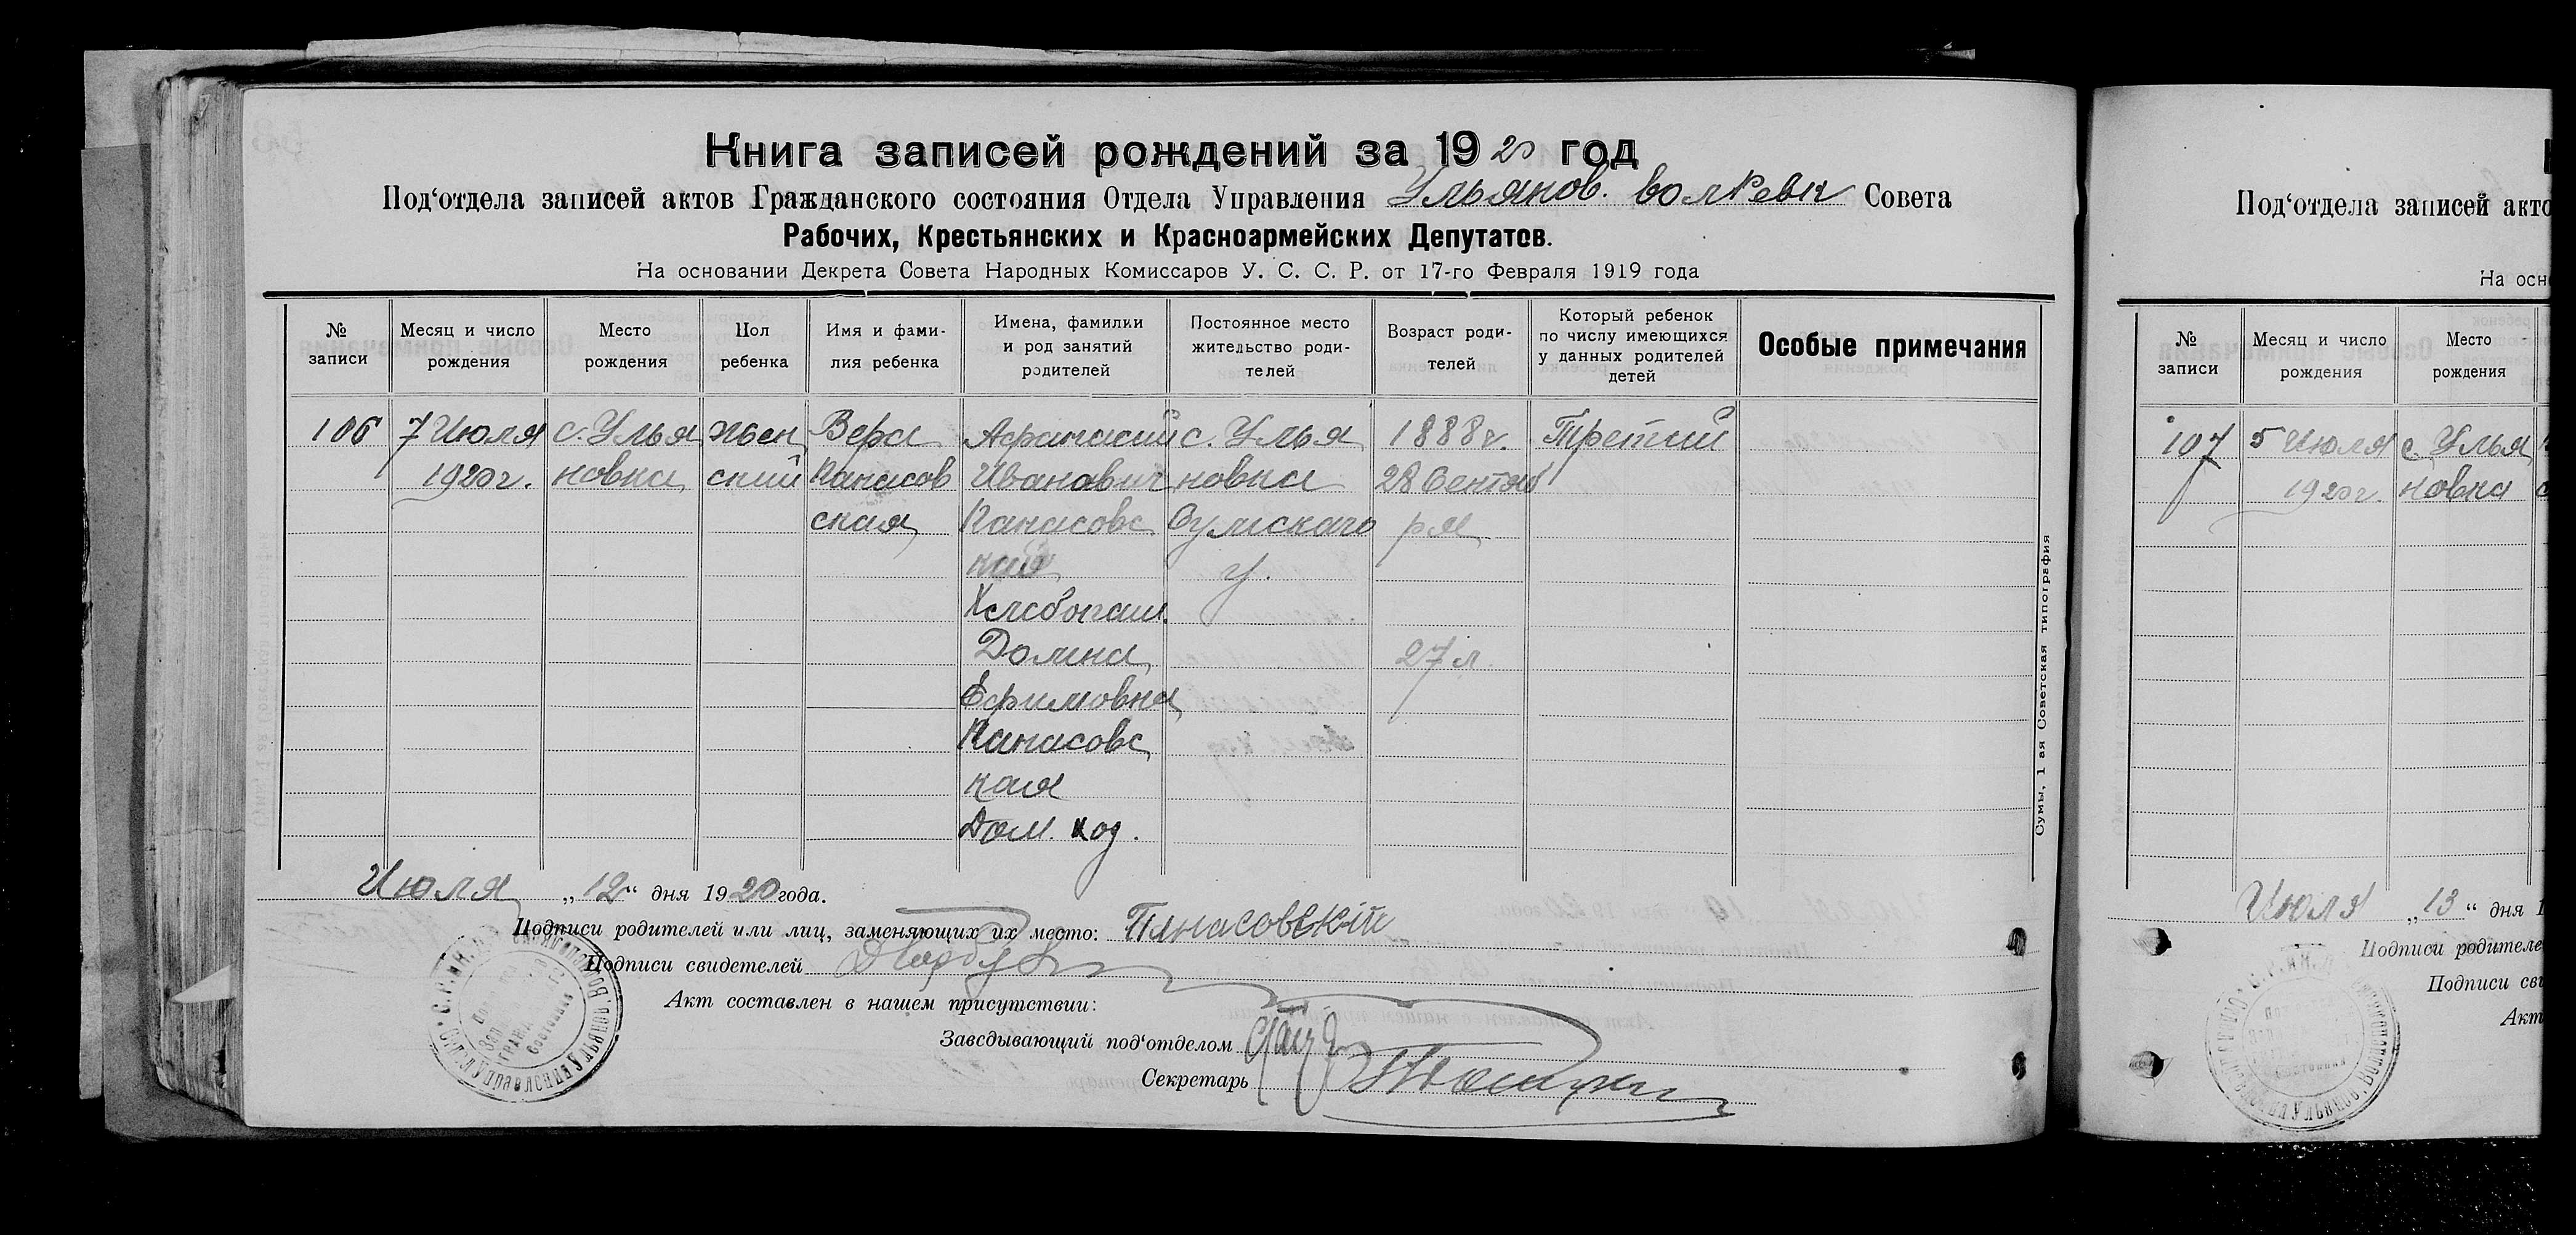 Книга записей рождений за 1920 год
Под‘отдела записей актов Гражданского состояния Отдела Управления Ульянов. волРевк Совета
Рабочих, Крестьянских и Красноармейских Депутатов.
На основании Декрета Совета Народных Комиссаров У. С. С. Р. от 17-го Февраля 1919 года
№ записи
Месяц и число рождения
Место рождения
Пол ребенка
Имя и фами-
лия ребенка
Имена, фамилии
и род занятий
родителей
Постоянное место
жительство роди-
телей
Возраст роди-
телей
Который ребенок
по числу имеющихся
у данных родителей
детей
Особые примечания
106
7 Июля
1920 г.
с. Улья
новка
жен
ский
Вера
Панасов
ская
Афанасий
Иванович
Панасовс
кий
Хлебопаш.
Домна
Ефимовна
Панасовс
кая
Дом. хоз.
с. Улья
новка
Сумского
у.
1888 г.
28 Сентяб
ря
27 л.
Третий
Июля „12“ дня 1920 года.
Подписи родителей или лиц, заменяющих их место: Пнасовскій
Подписи свидетелей
Акт составлен в нашем присутствии:
Заведывающий под‘отделом
Секретарь
Сумы, 1 ая Советская типография
Под‘отдела записей акто
На осн
№ записи
Месяц и число рождения
Место рождения
107
5 Июля
1920 г.
с. Улья
новка
Июля „13“ дня 1
Подписи родителе
Подписи сви
Акт